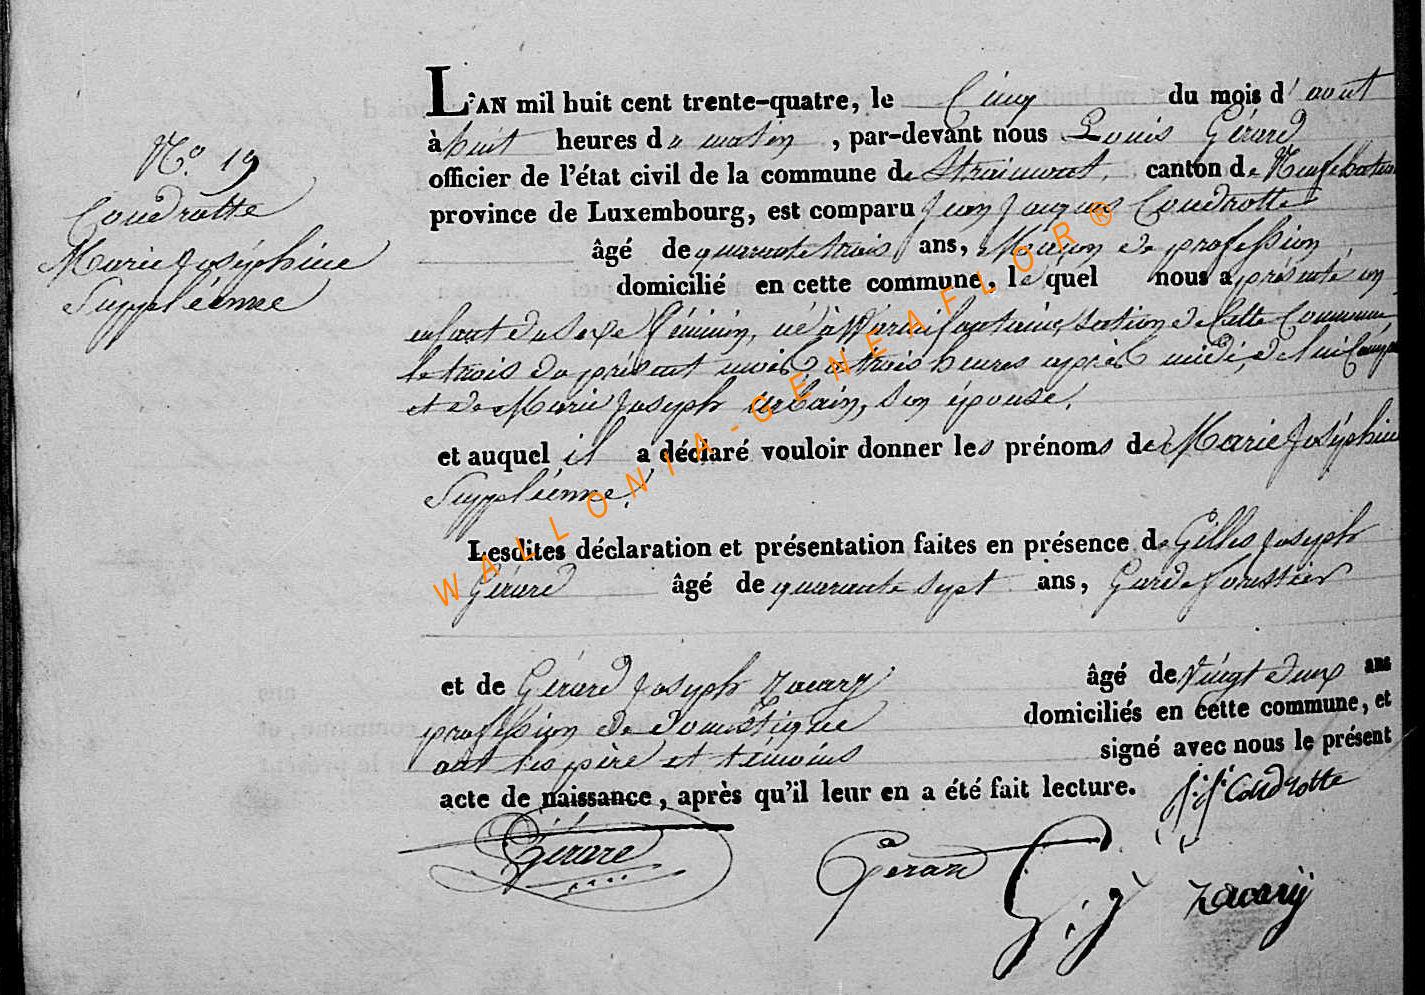 N.o 19
Coudrotte
Marie Joséphine
Suppléenne
L'AN mil huit cent trente-quatre, le Cinq du mois d'août
à huit heures du matin, par-devant nous Louis Gérard
officier de l'état civil de la commune de Straimont, canton de Neufchateau
province de Luxembourg, est comparu Jean Jacques Coudrotte
âgé de quarante trois ans, Maçon de profession,
domicilié en cette commune, lequel nous a présenté un
enfant du sexe féminin, né à Warmifontaine, section de Cette Commune
le trois du présent mois à trois heures après midi, de lui
et de Marie Joseph Urbain, son épouse,
et auquel il a déclaré vouloir donner les prénoms de Marie Joséphine
Suppléenne,
Lesdites déclaration et présentation faites en présence de Gilles Joseph
Gérard âgé de quarante sept ans, Garde forestier
et de Gérard Joseph Zacary âgé de vingt deux ans
profession de domestique domiciliés en cette commune, et
ont les père et témoins signé avec nous le présent
acte de naissance, après qu'il leur en a été fait lecture.
J. J. Coudrotte
Gérard
Gerard
G. J. Zacary
WALLONIA-GENEAFLOR®